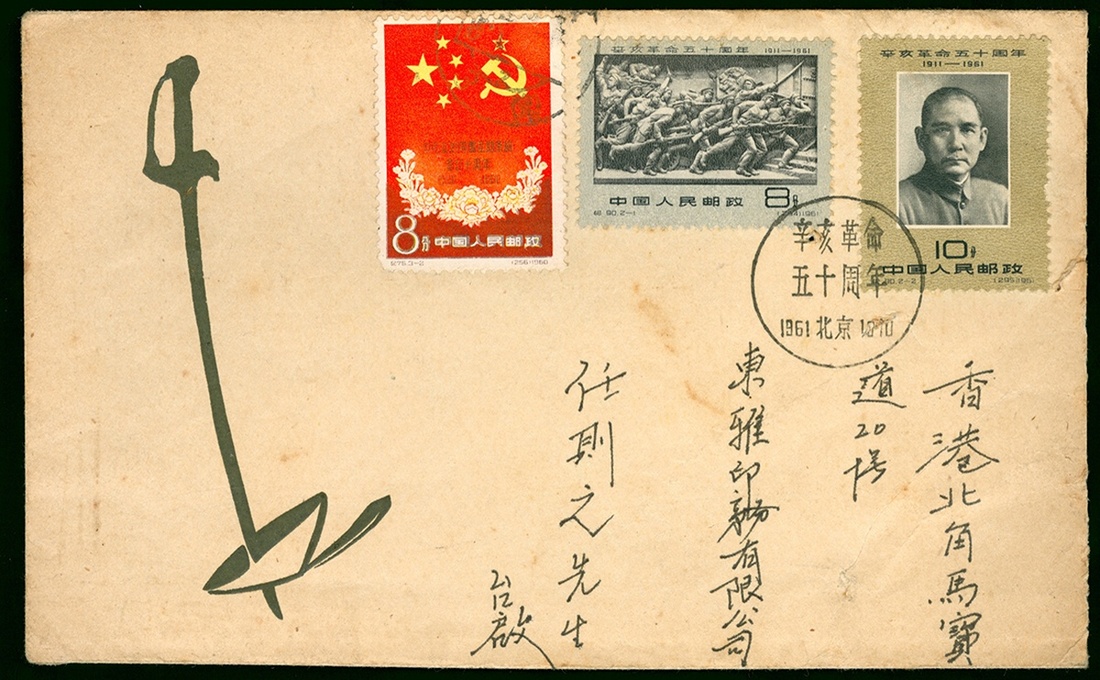 8分 中国人民邮政
(256)1960
辛亥革命五十周年 1911—1961
中国人民邮政 8分
辛亥革命五十周年
1911—1961
10分
中国人民邮政
辛亥革命
五十周年
1961 北京 10 10
香港北角馬寶
道20号
東雅印務有限公司
任則之先生
台啟